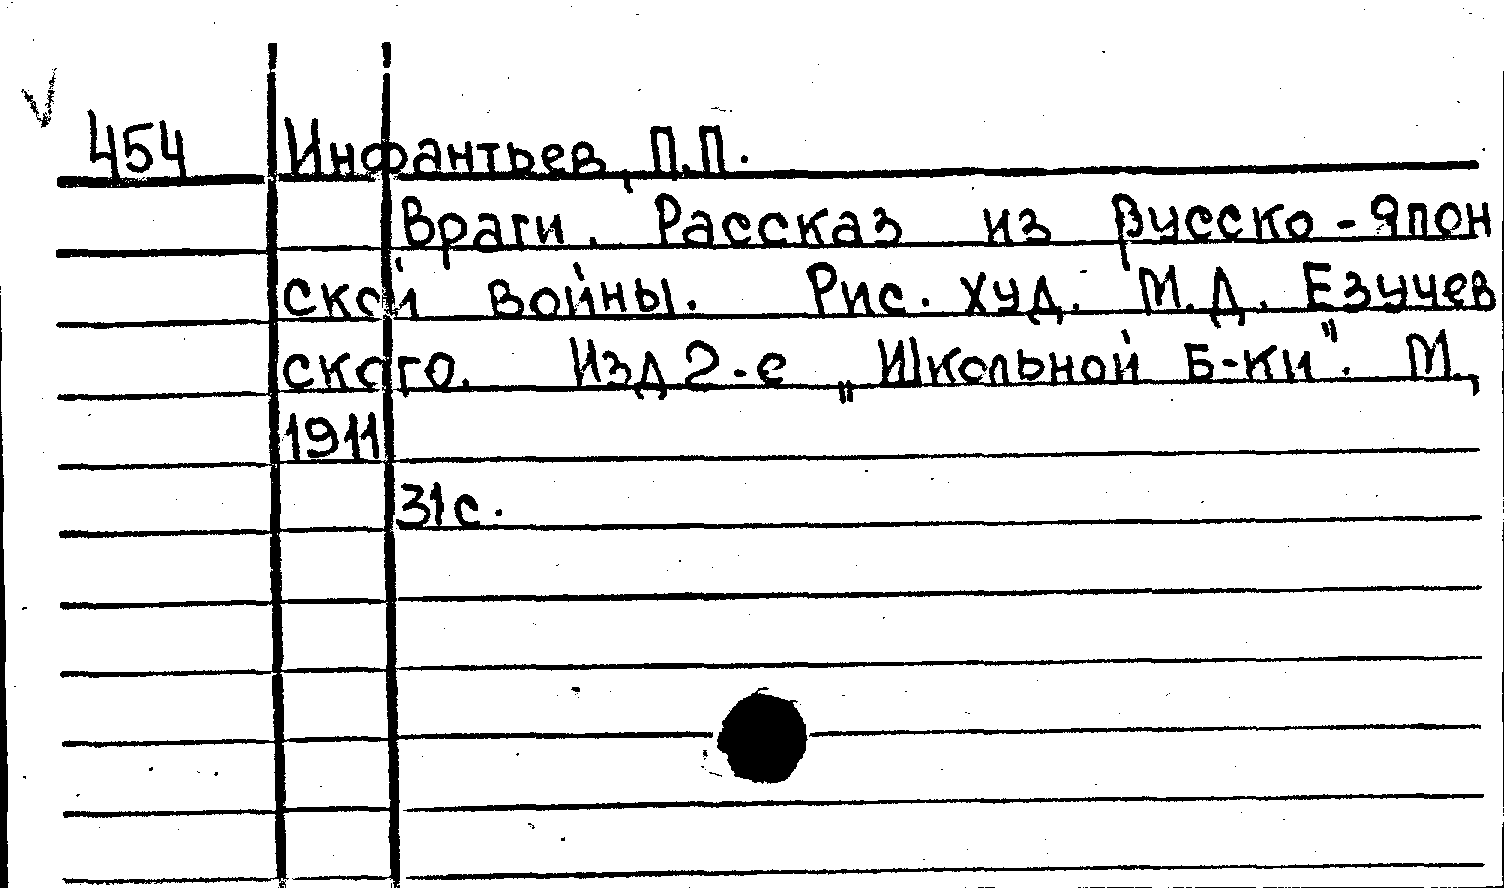 454 Инфантьев, П.П.
Враги. Рассказ из русско-япон
ской войны. Рис. худ. М.Д. Езучев
ского. Изд 2-е „Школьной б-ки". М.,
1911
31с.